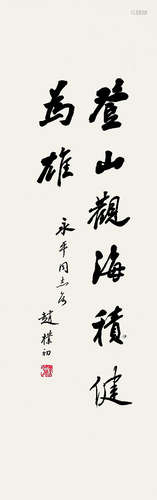 登山觀海積健
為雄
永平同志属
趙樸初